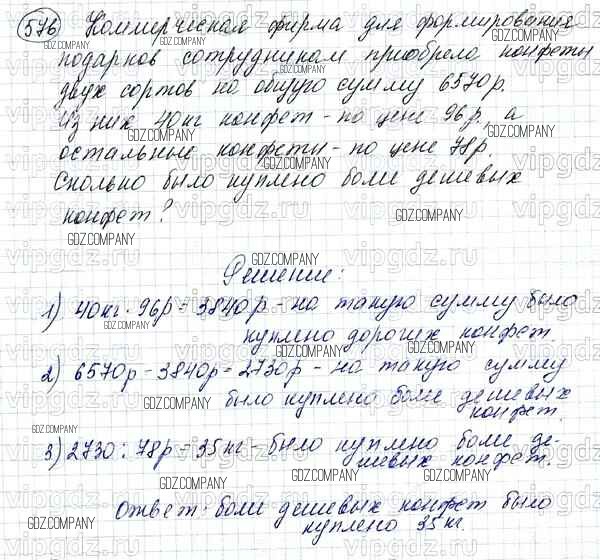 576 Коммерческая фирма для формирования
подарков сотрудникам приобрела конфеты
двух сортов на общую сумму 6570р.
Из них 40кг конфет - по цене 96р., а
остальные конфеты - по цене 78р
Сколько было куплено боли дешевых
конфет?
Решение:
1) 40кг · 96р = 3840р - на такую сумму было
куплено дорогих конфет.
2) 6570р - 3840р = 2730р - на такую сумму
было куплено боли дешевых
конфет.
3) 2730 : 78р = 35кг - было куплено боли де-
шевых конфет.
Ответ: боли дешевых конфет было
куплено 35кг.
GDZ.COMPANY
vipgdz.ru